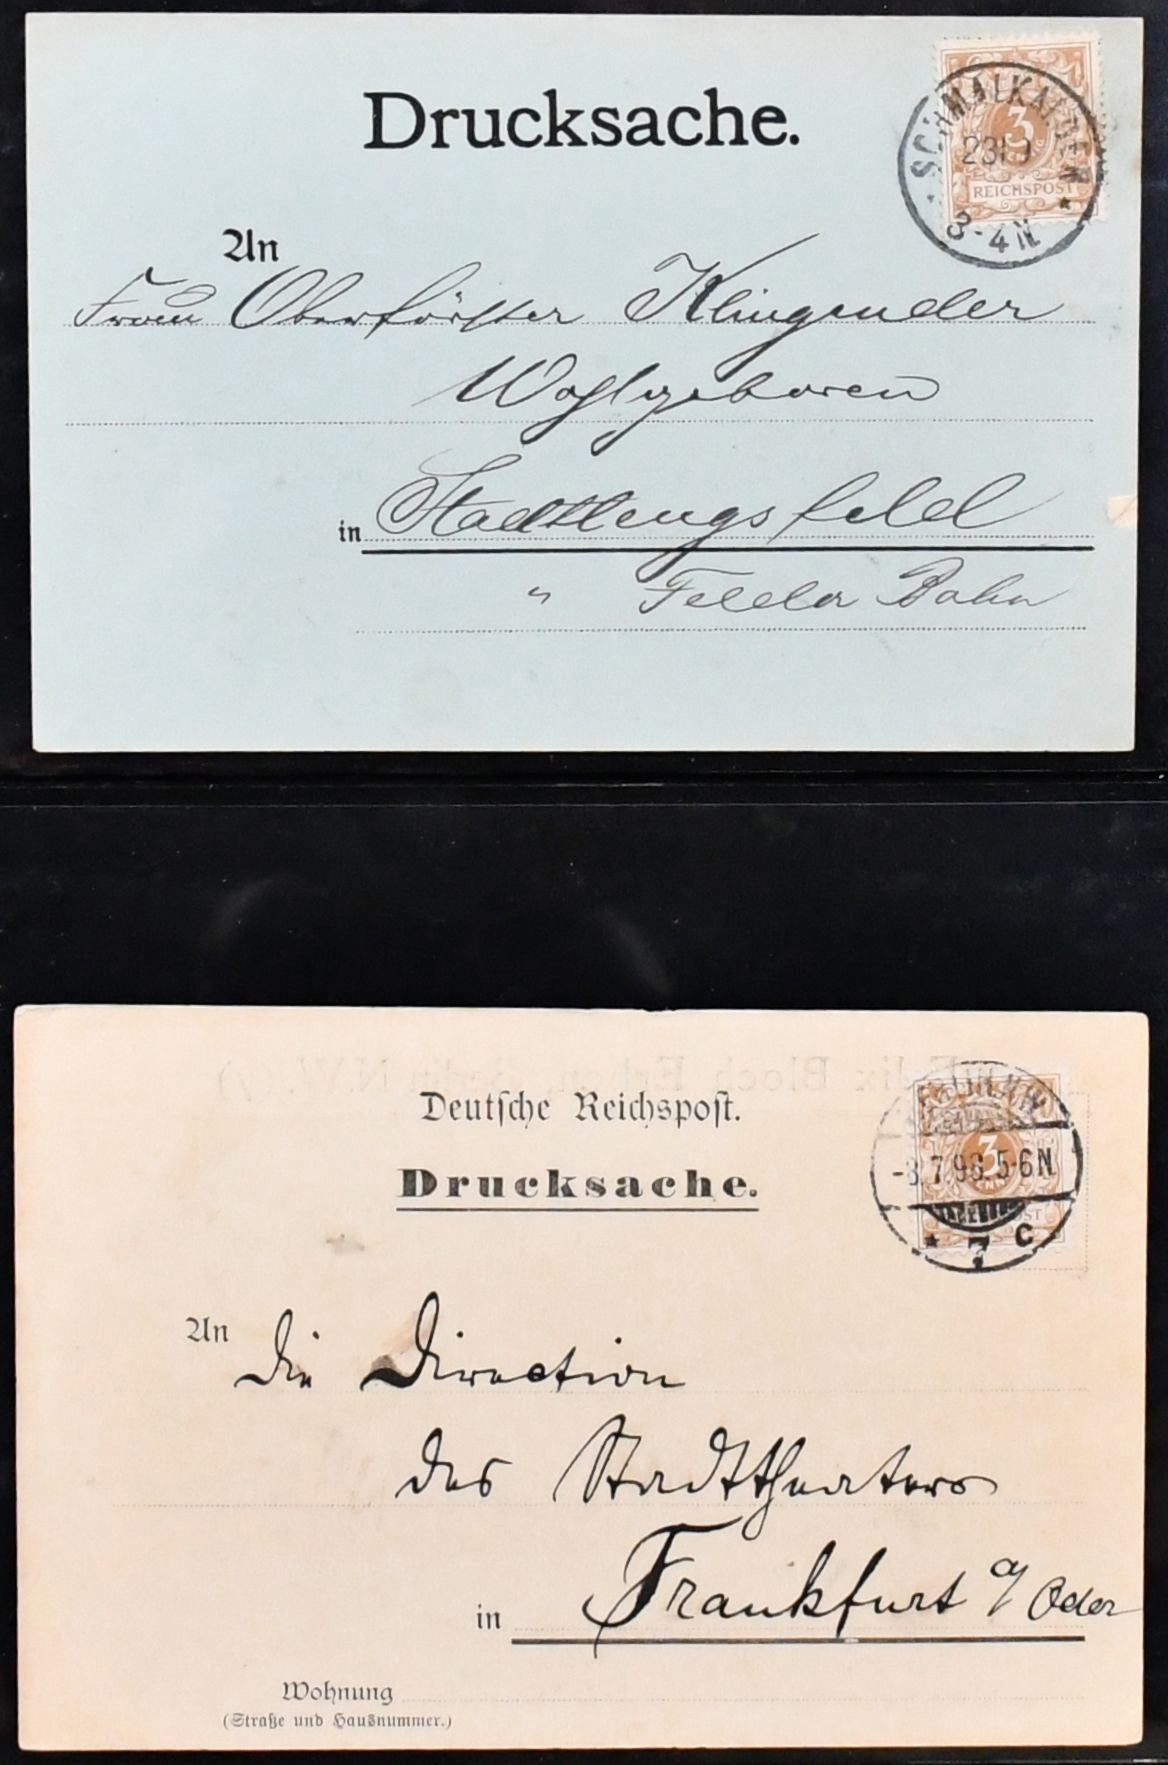 Drucksache.
SCHMALKALDEN
3
23 9
REICHSPOST
3-4 N
An
Frau Oberförster Klingender
Wohlgeboren
in Stadtlengsfeld
" Felda Bahn
Felix Bloch Erben, Berlin N.W.
Deutsche Reichspost.
Drucksache.
3
7.98. 5-6N
* 7 c
An die Direction
des Stadttheaters
in Frankfurt a/ Oder
Wohnung
(Straße und Hausnummer.)